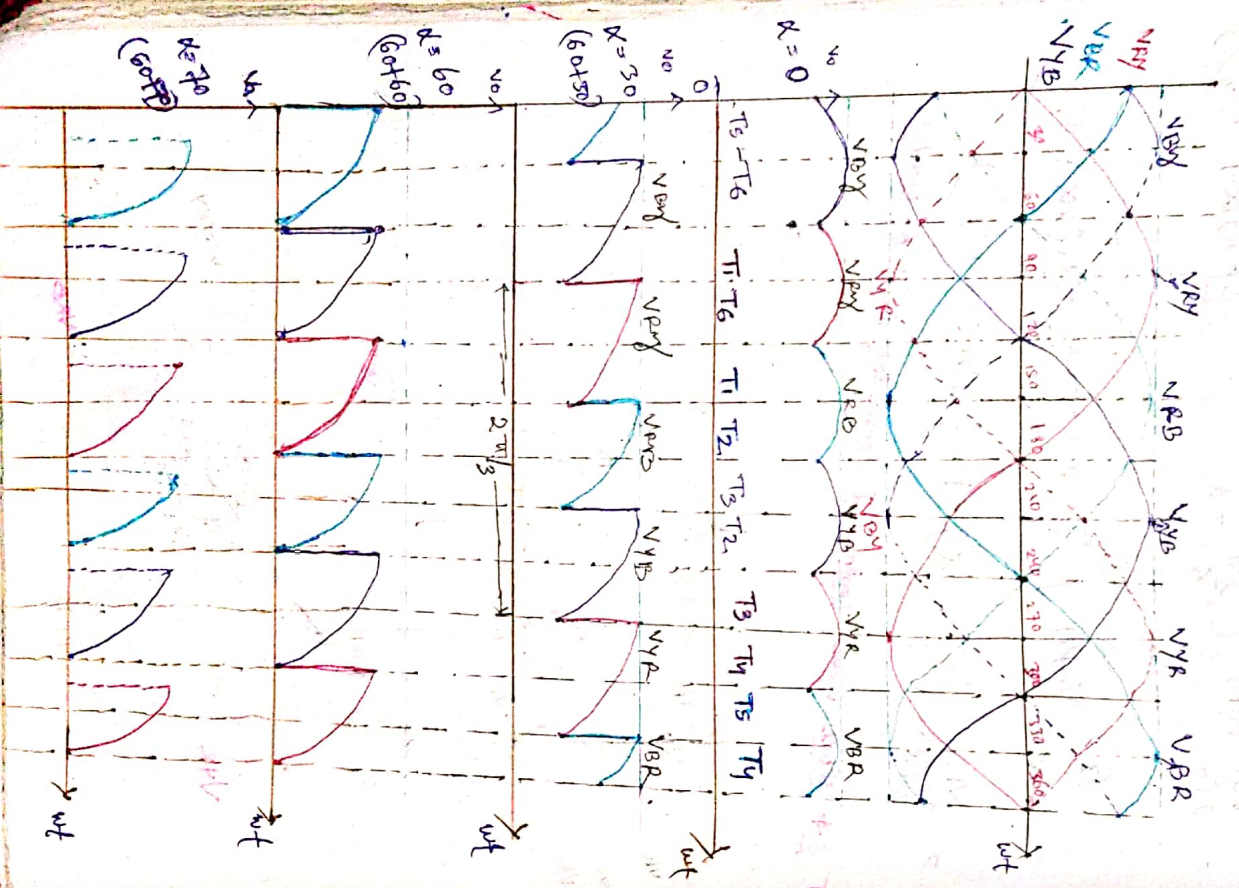 VRY
VBR
VYB
VBY
VRY
VRB
VYB
VYR
VBR
30
60
90
120
150
180
210
240
270
300
330
360
wt
α = 0
Vo
VBY
VRY
VYR
VRB
VYB
VBY
VYR
VBR
0
T5-T6
T1 T6
T1 T2
T3 T2
T3 T4
T5 T4
wt
α = 30
(60+30)
Vo
VBY
VRY
VRB
VYB
VYR
VBR
2π/3
wt
α = 60
(60+60)
Vo
wt
α = 70
Vo
wt